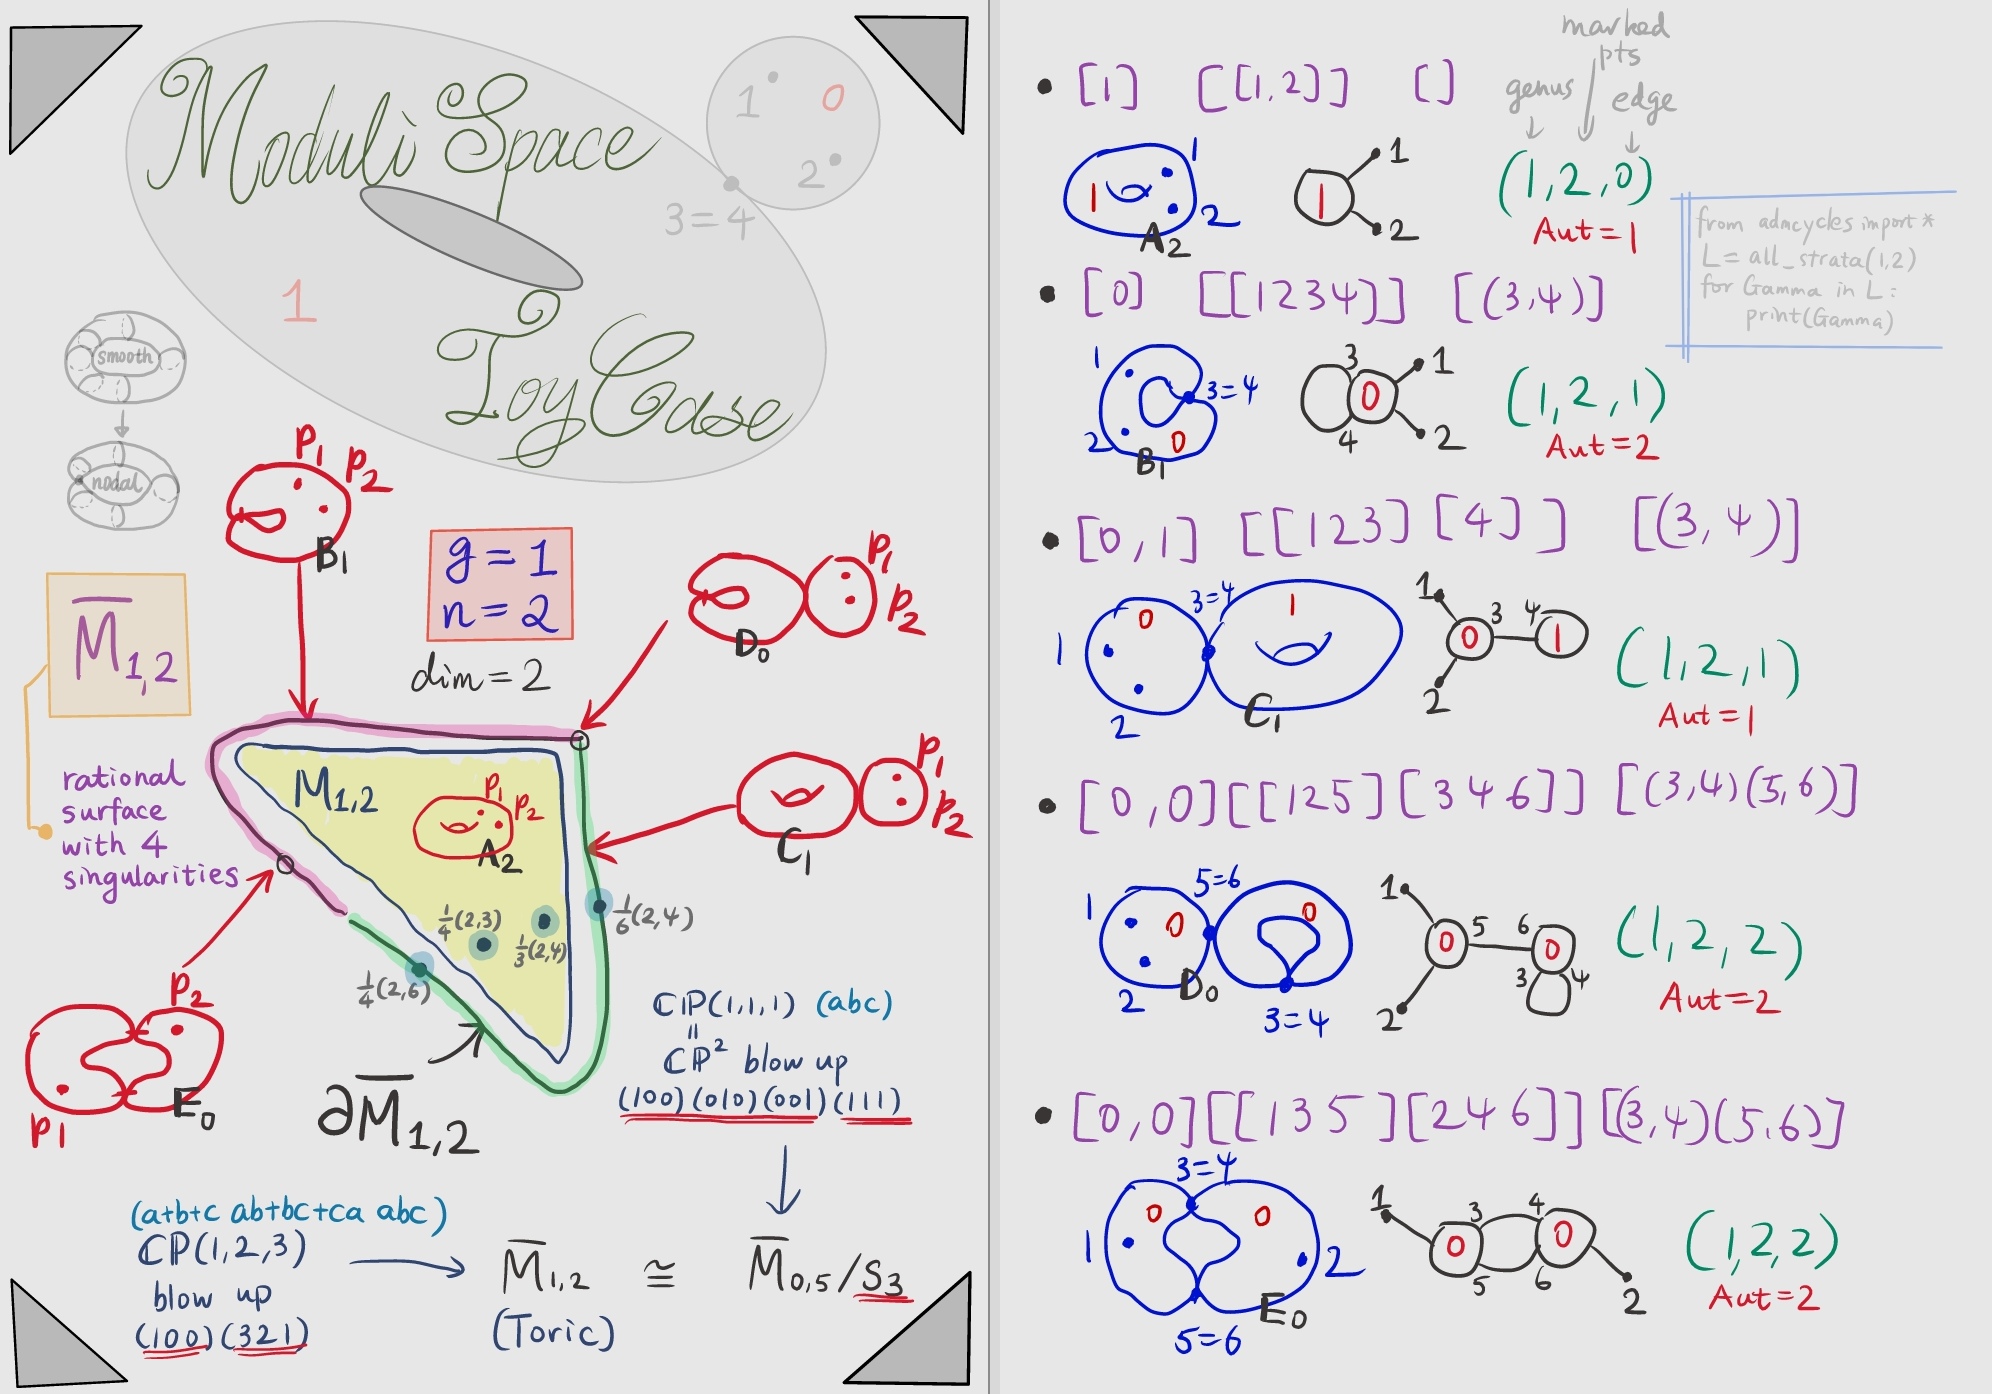 Moduli Space
Toy Case
1
0
2
3=4
1
smooth
nodal
P1 P2
B1
g = 1
n = 2
dim = 2
P1
P2
D0
M̅1,2
rational
surface
with 4
singularities
M1,2
P1
P2
A2
P1
P2
C1
1/4(2,3)
1/3(2,4)
1/6(2,4)
1/4(2,6)
P2
P1
E0
∂M̅1,2
CP(1,1,1) (abc)
=
CP² blow up
(100)(010)(001)(111)
(a+b+c ab+bc+ca abc)
CP(1,2,3)
blow up
(100)(321)
M̅1,2 ≅ M̅0,5/S3
(Toric)
marked
pts
genus
edge
• [1] [[1,2]] []
1
1
2
A2
1
1
2
(1,2,0)
Aut=1
from admcycles import *
L = all_strata(1,2)
for Gamma in L:
print(Gamma)
• [0] [[1234]] [(3,4)]
1
3=4
2
0
B1
3
1
0
4
2
(1,2,1)
Aut=2
• [0,1] [[123][4]] [(3,4)]
0
3=4
1
1
2
C1
1
3
4
0
1
2
(1,2,1)
Aut=1
• [0,0][[125][346]] [(3,4)(5,6)]
1
5=6
0
0
2
D0
3=4
1
5
6
0
0
3
4
2
(1,2,2)
Aut=2
• [0,0][[135][246]][(3,4)(5,6)]
3=4
0
0
1
2
E0
5=6
1
3
4
0
0
5
6
2
(1,2,2)
Aut=2